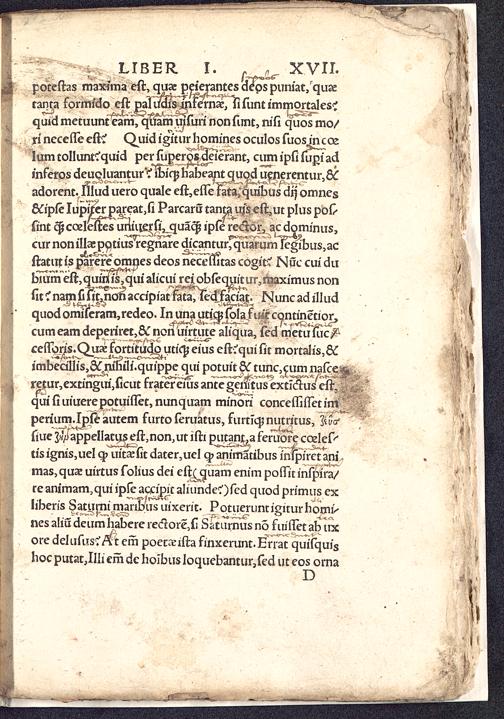 LIBER I. XVII.
potestas maxima est, quæ peierantes deos puniat, quæ
tanta formido est paludis infernæ, si sunt immortales?
quid metuunt eam, quam uisuri non sunt, nisi quos mo/
ri necesse est? Quid igitur homines oculos suos in cœ
lum tollunt? quid per superos deierant, cum ipsi supi ad
inferos deuoluantur? ibiq; habeant quod uenerentur, &
adorent. Illud uero quale est, esse fata, quibus dij omnes
& ipse Iupiter pareat, si Parcarū tanta uis est, ut plus pos/
sint q̄ cœlestes uniuersi, quāq; ipse rector, ac dominus,
cur non illæ potius regnare dicantur, quarum legibus, ac
statutis parere omnes deos necessitas cogit? Nūc cui du
bium est, quin is, qui alicui rei obsequitur, maximus non
sit? nam si sit, non accipiat fata, sed faciat. Nunc ad illud
quod omiseram, redeo. In una utiq; sola fuit continētior,
cum eam deperiret, & non uirtute aliqua, sed metu suc/
cessoris. Quæ fortitudo utiq; eius est? qui sit mortalis, &
imbecillis, & nihili. quippe qui potuit & tunc, cum nasce
retur, extingui, sicut frater eius ante genitus extīctus est.
qui si uiuere potuisset, nunquam minori concessisset im
perium. Ipse autem furto seruatus, furtiq; nutritus,
siue appellatus est, non, ut isti putant, a feruore cœles/
tis ignis, uel q uitæ sit dater, uel q animātibus inspiret ani
mas, quæ uirtus solius dei est (quam enim possit inspira/
te animam, qui ipse accipit aliunde?) sed quod primus ex
liberis Saturni maribus uixerit. Potuerunt igitur homi/
nes aliū deum habere rectorē, si Saturnus nō fuisset ab ux
ore delusus? At em̄ poetæ ista finxerunt. Errat quisquis
hoc putat, Illi em̄ de hoībus loquebantur, sed ut eos orna
D